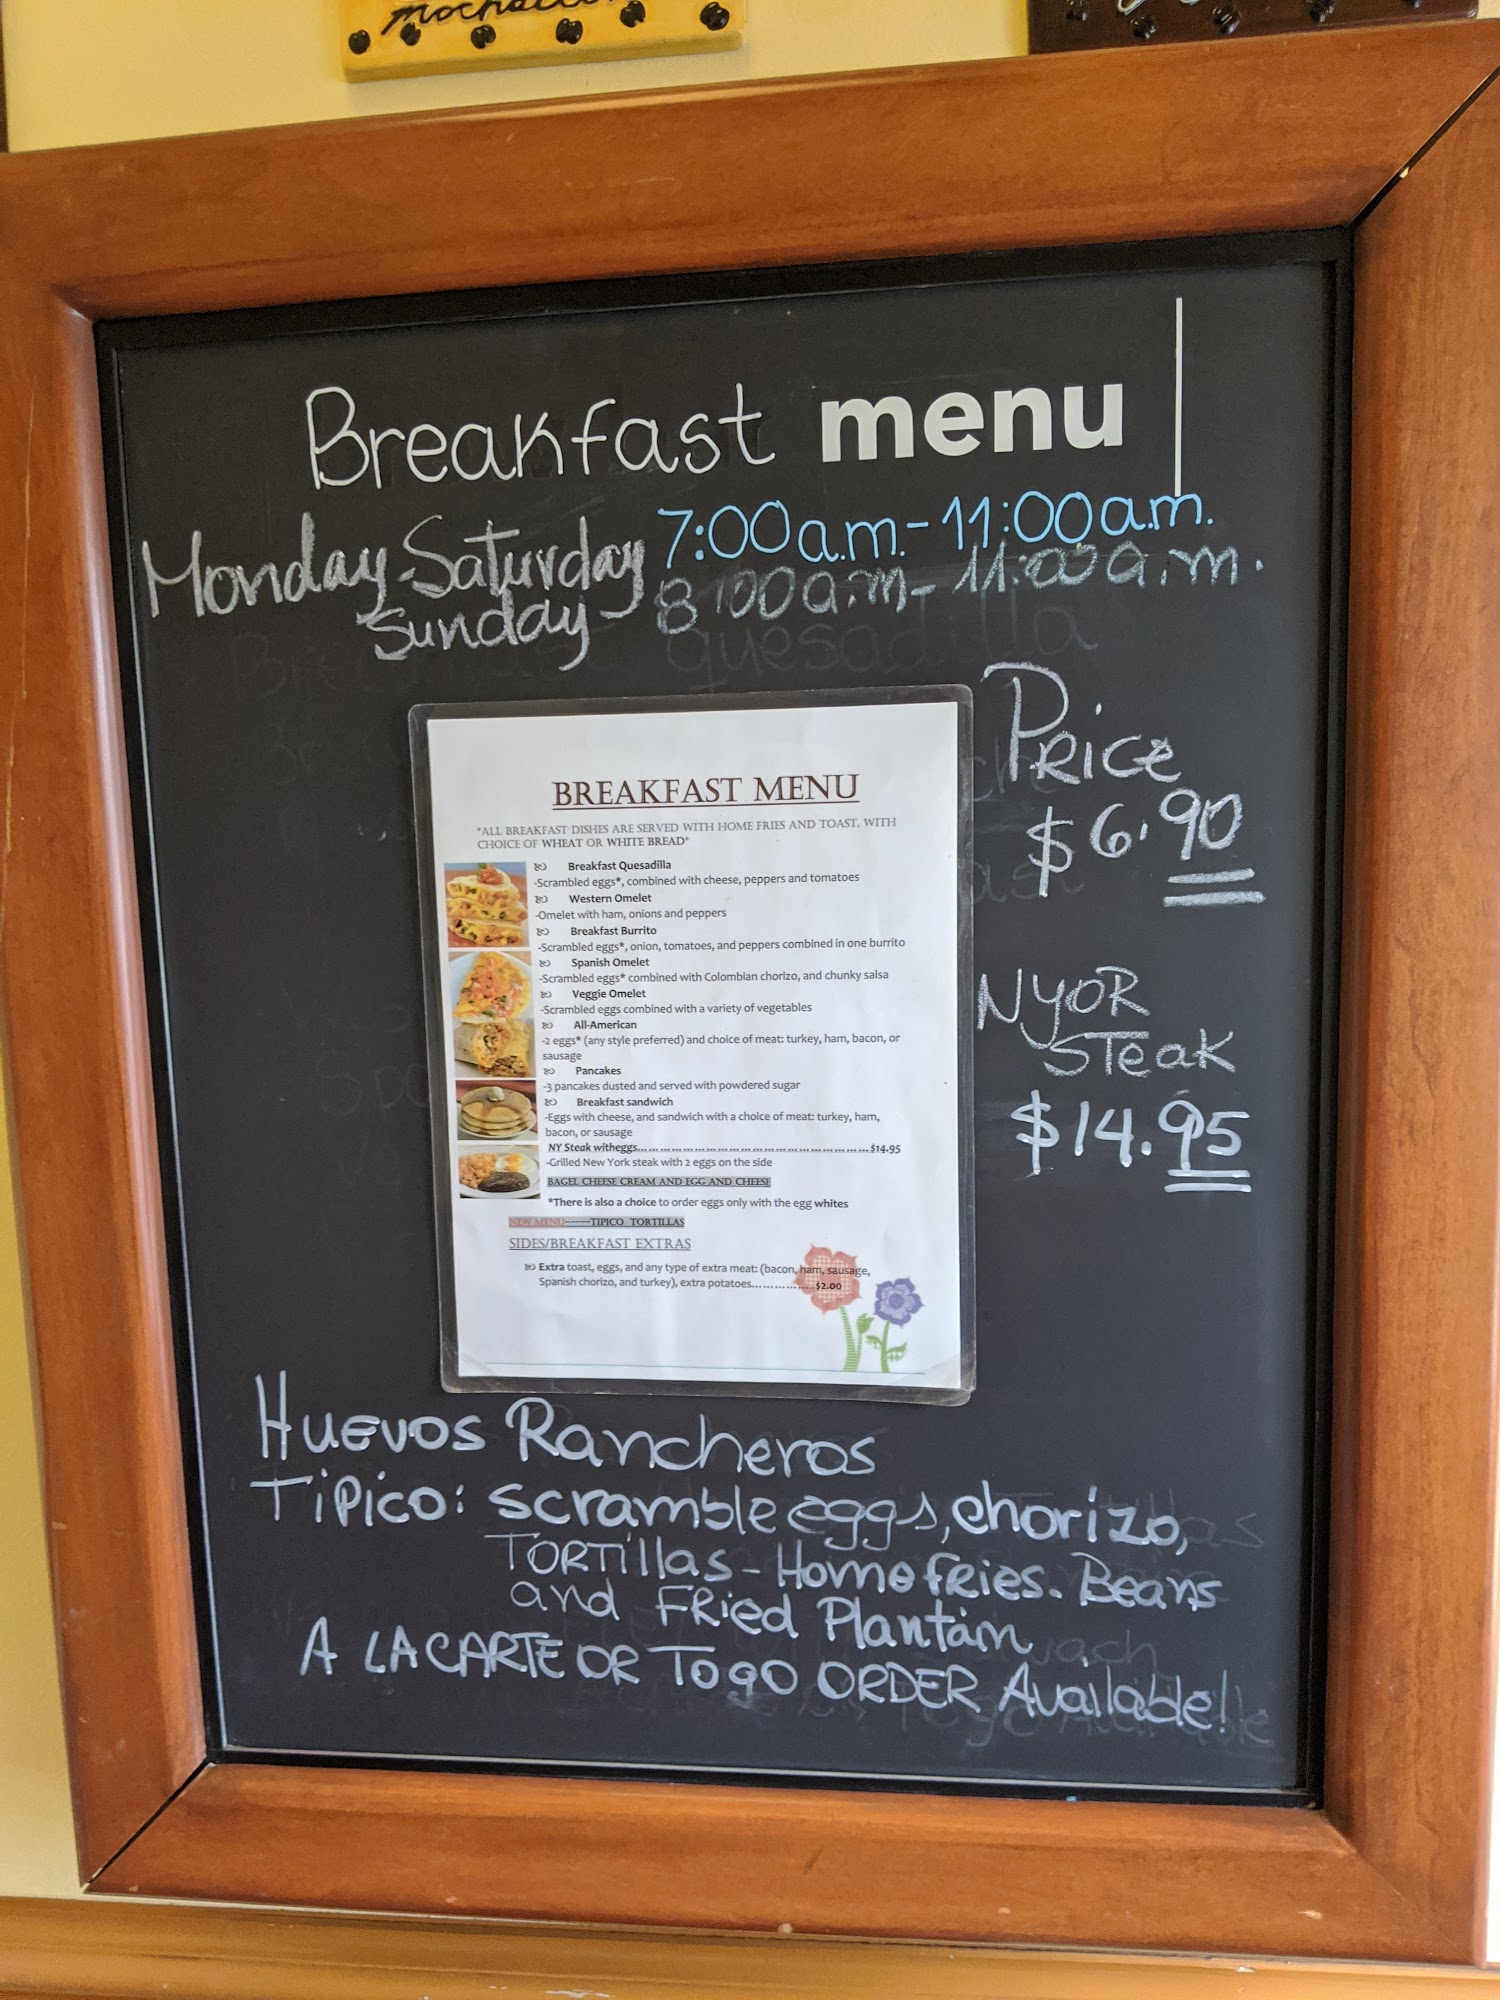 Breakfast menu
Monday-Saturday 7:00a.m.-11:00a.m.
Sunday - 8:00a.m-11:00a.m.
Price
$6.90
BREAKFAST MENU
*ALL BREAKFAST DISHES ARE SERVED WITH HOME FRIES AND TOAST, WITH
CHOICE OF WHEAT OR WHITE BREAD*
Breakfast Quesadilla
-Scrambled eggs*, combined with cheese, peppers and tomatoes
Western Omelet
-Omelet with ham, onions and peppers
Breakfast Burrito
-Scrambled eggs*, onion, tomatoes, and peppers combined in one burrito
Spanish Omelet
-Scrambled eggs* combined with Colombian chorizo, and chunky salsa
Veggie Omelet
-Scrambled eggs combined with a variety of vegetables
All-American
-2 eggs* (any style preferred) and choice of meat: turkey, ham, bacon, or
sausage
Pancakes
-3 pancakes dusted and served with powdered sugar
Breakfast sandwich
-Eggs with cheese, and sandwich with a choice of meat: turkey, ham,
bacon, or sausage
NY Steak witheggs..........$14.95
-Grilled New York steak with 2 eggs on the side
BAGEL CHEESE CREAM AND EGG AND CHEESE
*There is also a choice to order eggs only with the egg whites
NEW MENU-----TIPICO TORTILLAS
SIDES/BREAKFAST EXTRAS
Extra toast, eggs, and any type of extra meat: (bacon, ham, sausage,
Spanish chorizo, and turkey), extra potatoes...............$2.00
NYOR
STeak
$14.95
HUEVOS Rancheros
TiPico: scramble eggs, chorizo,
TORTillas - Home fries. Beans
and Fried Plantain
A LA CARTE OR TO go ORDER Available!